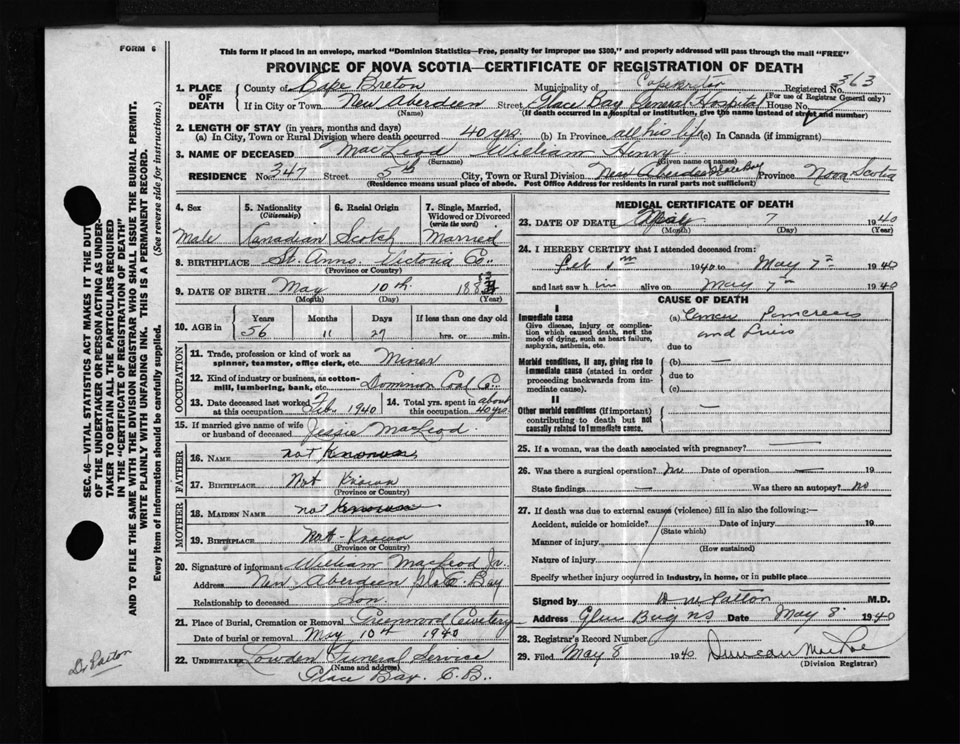 FORM 6
This form if placed in an envelope, marked "Dominion Statistics—Free, penalty for improper use $300," and properly addressed will pass through the mail "FREE"
PROVINCE OF NOVA SCOTIA—CERTIFICATE OF REGISTRATION OF DEATH
363
1. PLACE OF DEATH County of Cape Breton Municipality of Cape Breton Registered No.
(For use of Registrar General only)
If in City or Town New Aberdeen Street Glace Bay General Hospital House No.
(Name) (If death occurred in a hospital or institution, give the name instead of street and number)
2. LENGTH OF STAY (in years, months and days)
(a) In City, Town or Rural Division where death occurred 40 yrs. (b) In Province all his life (c) In Canada (if immigrant)
3. NAME OF DECEASED MacLeod William Henry
(Surname) (Given name or names)
RESIDENCE No. 347 Street 5th City, Town or Rural Division New Aberdeen Glace Bay Province Nova Scotia
(Residence means usual place of abode. Post Office Address for residents in rural parts not sufficient)
4. Sex 5. Nationality (Citizenship) 6. Racial Origin 7. Single, Married, Widowed or Divorced (write the word)
Male Canadian Scotch Married
8. BIRTHPLACE St. Anns. Victoria Co..
(Province or Country)
9. DATE OF BIRTH May 10th. 188
(Month) (Day) (Year)
10. AGE in Years Months Days If less than one day old
56 11 27 hrs. or min.
OCCUPATION
11. Trade, profession or kind of work as spinner, teamster, office clerk, etc. Miner
12. Kind of industry or business, as cotton-mill, lumbering, bank, etc. Dominion Coal Co.
13. Date deceased last worked at this occupation Feb. 1940 14. Total yrs. spent in this occupation about 40 yrs.
15. If married give name of wife or husband of deceased Jessie MacLeod.
FATHER
16. NAME not Known
17. BIRTHPLACE Not Known
(Province or Country)
MOTHER
18. MAIDEN NAME not Known
19. BIRTHPLACE Not-Known
(Province or Country)
20. Signature of informant William MacLeod Jr.
Address New Aberdeen Glace Bay
Relationship to deceased Son.
21. Place of Burial, Cremation or Removal Greenwood Cemetery
Date of burial or removal May 10th 1940
22. UNDERTAKER Lowden Funeral Service
(Name and address)
Glace Bay. C.B..
MEDICAL CERTIFICATE OF DEATH
23. DATE OF DEATH May 7 1940
(Month) (Day) (Year)
24. I HEREBY CERTIFY that I attended deceased from:
Feb 1940 to May 7th 1940
and last saw him alive on May 7th 1940
CAUSE OF DEATH
I
Immediate cause (a) Cancer Pancreas
Give disease, injury or complication which caused death, not the mode of dying, such as heart failure, asphyxia, asthenia, etc.
and
due to
Morbid conditions, if any, giving rise to immediate cause (stated in order proceeding backwards from immediate cause).
(b) —
due to
(c)
II
Other morbid conditions (if important) contributing to death but not causally related to immediate cause. —
25. If a woman, was the death associated with pregnancy? —
26. Was there a surgical operation? no Date of operation — 19
State findings — Was there an autopsy? no
27. If death was due to external causes (violence) fill in also the following:—
Accident, suicide or homicide? Date of injury 19
(State which)
Manner of injury
(How sustained)
Nature of injury
Specify whether injury occurred in industry, in home, or in public place
Signed by D M Patton M.D.
Address Glace Bay NS Date May 8. 1940
28. Registrar's Record Number
29. Filed May 8 1940 Duncan MacRae
(Division Registrar)
SEC. 46—VITAL STATISTICS ACT MAKES IT THE DUTY
OF THE UNDERTAKER OR PERSON ACTING AS UNDER-
TAKER TO OBTAIN ALL THE PARTICULARS REQUIRED
IN THE "CERTIFICATE OF REGISTRATION OF DEATH"
AND TO FILE THE SAME WITH THE DIVISION REGISTRAR WHO SHALL ISSUE THE BURIAL PERMIT.
WRITE PLAINLY WITH UNFADING INK. THIS IS A PERMANENT RECORD.
Every item of information should be carefully supplied. (See reverse side for instructions.)
Dr Patton